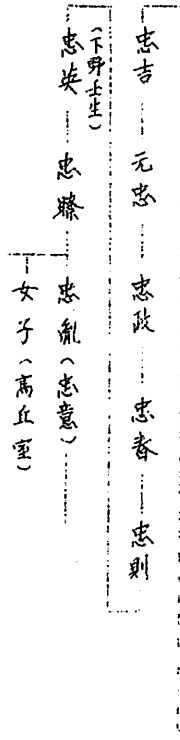 忠吉 元忠 忠政 忠春 忠則
(下野壬生)
忠英 忠燎 忠胤(忠意)
女子(高丘室)